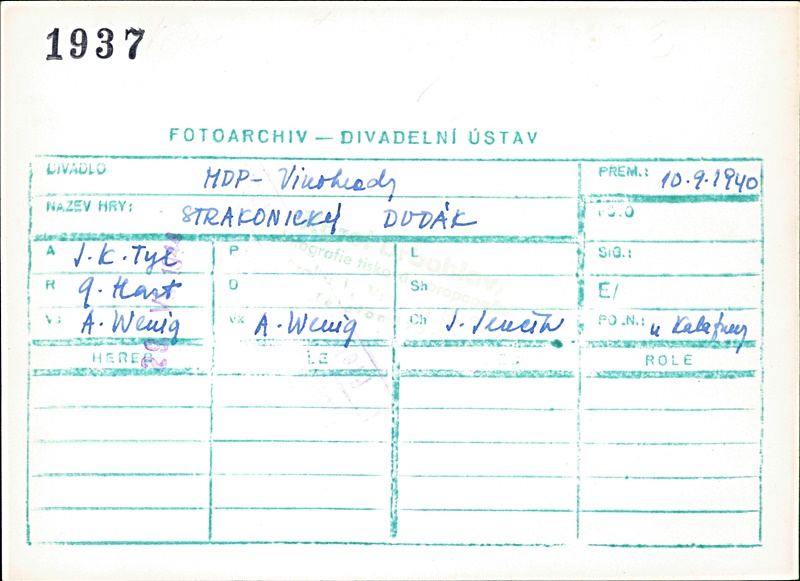 1937
FOTOARCHIV — DIVADELNÍ ÚSTAV
DIVADLO MDP - Vinohrady PREM.: 10.9.1940
NÁZEV HRY: STRAKONICKÝ DUDÁK
A J. K. Tyl P L SIG.:
R J. Hart D Sh E/
A. Wenig A. Wenig Ch J. Jenčík
HEREC ROLE